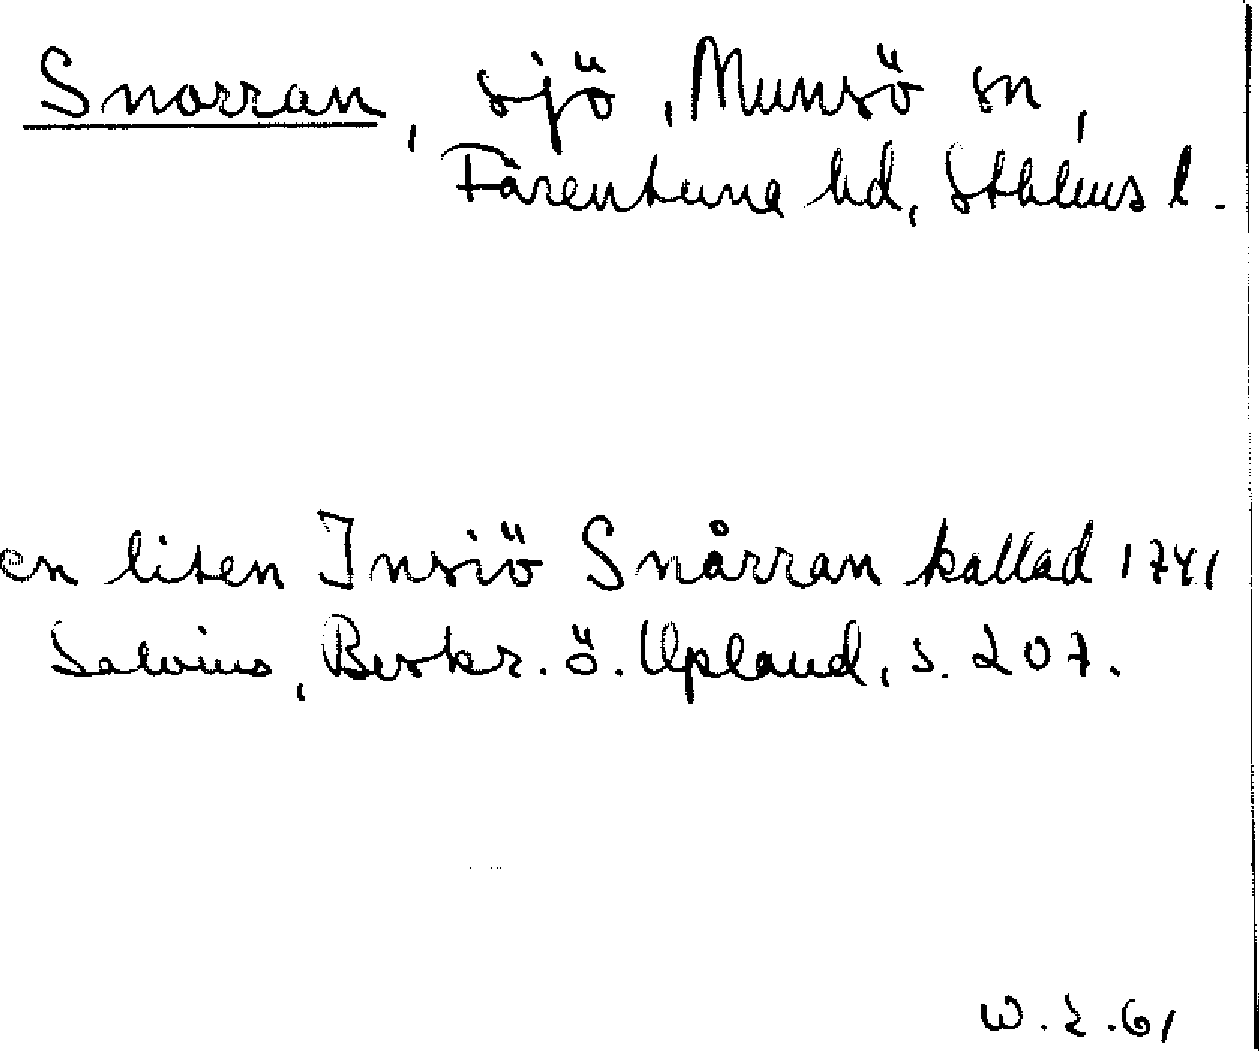 Snorran, sjö, Munsö sn,
Färentuna hd, Sthlms l.
en liten Insiö Snårran kallad 1741
Salvius, Beskr. ö. Upland, s. 207.
W. Z. 61